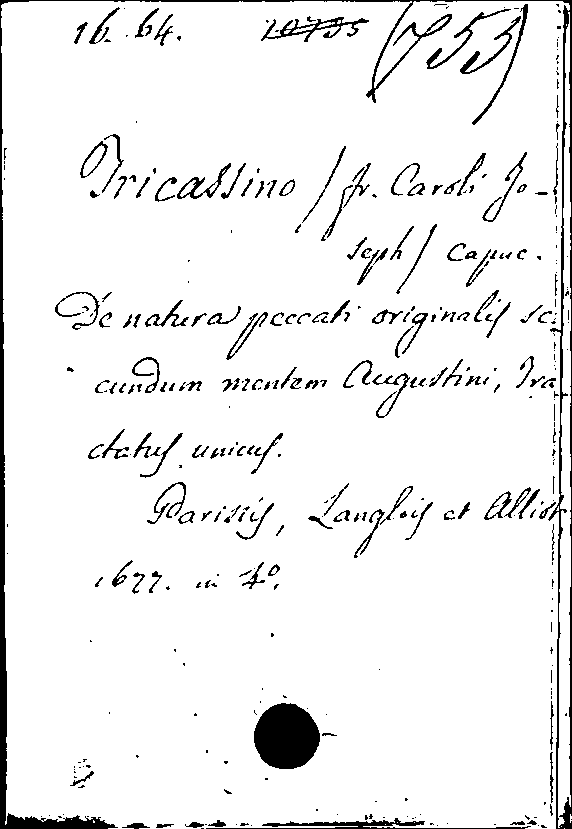 16. 64. 10735 (753)
Tricassino / fr. Caroli Jo-
seph / Capuc.
De natura peccati originalis se-
cundum mentem Augustini, Tra
ctatus unicus.
Parisiis, Langlois et Alliot
1677. in 4°.